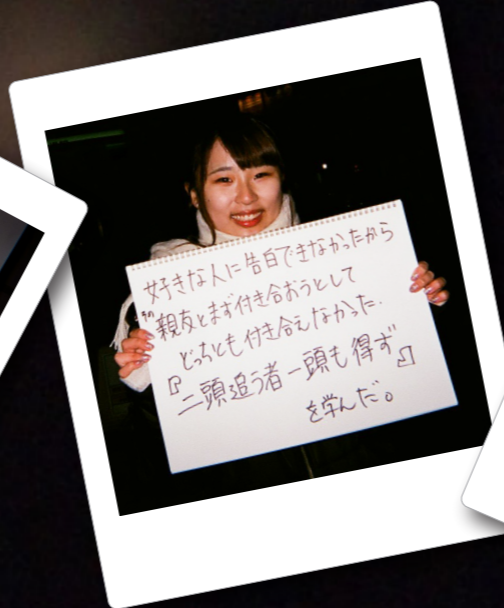 好きな人に告白できなかったから
その親友とまず付き合おうとして
どっちとも付き合えなかった.
『二頭追う者一頭も得ず』
を学んだ。